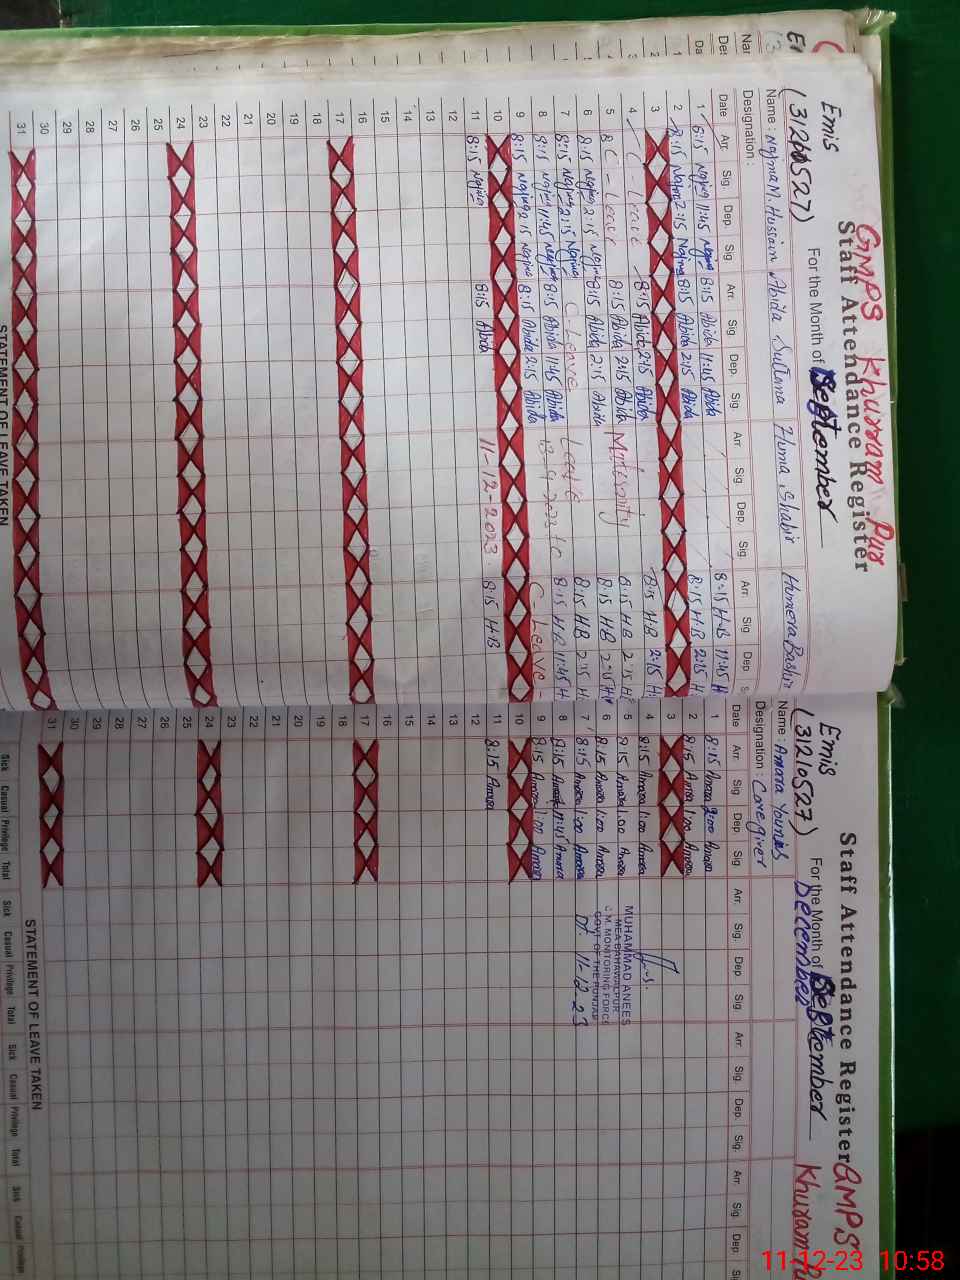 GMPS Khurram Pur
Staff Attendance Register
Emis
(31210527)
For the Month of
Name : Najma M. Hussain Abida Sultana Huma Shabir Humera Bashir
Designation :
Date Arr. Sig. Dep. Sig Arr. Sig. Dep. Sig Arr Sig. Dep. Sig Arr. Sig Dep
1 8:15 Najma 11:45 Najma 8:15 Abida 11:45 Abida 8:15 H-B 11:45 H
2 8:15 Najma 2:15 Najma 8:15 Abida 2:15 Abida 8:15 H-B 2:15 H
3
4 C - Leave 8:15 Abida 2:15 Abida 8:15 H.B 2:15 H
5 C - Leave 8:15 Abida 2:15 Abida 8:15 H.B 2:15 H
6 8:15 Najma 2:15 Najma 8:15 Abida 2:15 Abida Maternity 8:15 H.B 2:15 H
7 8:15 Najma 2:15 Najma C Leave Leave 8:15 H.B 2:15 H
8 8:15 Najma 11:45 Najma 8:15 Abida 11:45 Abida 13-9-2023 to 8:15 H.B 11:45 H
9 8:15 Najma 2:15 Najma 8:15 Abida 2:15 Abida C - Leave -
10
11 8:15 Najma 8:15 Abida 11-12-2023 8:15 H-B
12
13
14
15
16
17
18
19
20
21
22
23
24
25
26
27
28
29
30
31
STATEMENT OF LEAVE TAKEN
Staff Attendance Register GMPS
Khuram
Emis
(31210527)
For the Month of
December
Name : Amara Younas
Designation : Caregiver
Date Arr. Sig Dep. Sig Arr. Sig. Dep Sig. Arr. Sig. Dep Sig. Arr. Sig. Dep.
1 8:15 Amara 2:00 Amara
2 8:15 Amara 1:00 Amara
3
4 8:15 Amara 1:00 Amara
5 8:15 Amara 1:00 Amara
6 8:15 Amara 1:00 Amara
7 8:15 Amara 1:00 Amara
8 8:15 Amara 11:45 Amara
9 8:15 Amara 1:00 Amara
10
11 8:15 Amara
12
13
14
15
16
17
18
19
20
21
22
23
24
25
26
27
28
29
30
31
MUHAMMAD ANEES
MEA BAHAWALPUR
C.M. MONITORING FORCE
GOVT OF THE PUNJAB
Dt. 11-12-23
STATEMENT OF LEAVE TAKEN
Sick Casual Privilege Total Sick Casual Privilege Total Sick Casual Privilege Total Sick Casual Privilege
11-12-23 10:58